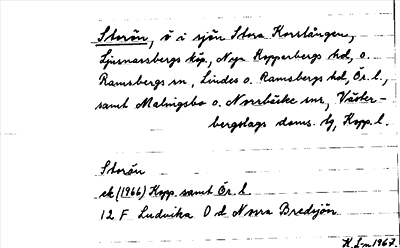 Storön, ö i sjön Stora Korslången,
Ljusnarsbergs köp., Nya Kopparbergs hd, o.
Ramsbergs sn, Lindes o. Ramsbergs hd, Ör. l.,
samt Malingsbo o. Norrbärke snr, Väster-
bergslags doms. tg, Kopp. l.
Storön
ek (1966) Kopp. samt Ör. l
12 F Ludvika 0 d Norra Bredsjön
K. Lm 1967.